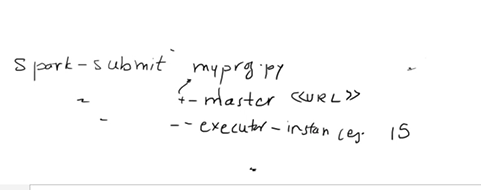 spark-submit myprg.py
--master <<URL>>
--executor-instances 15